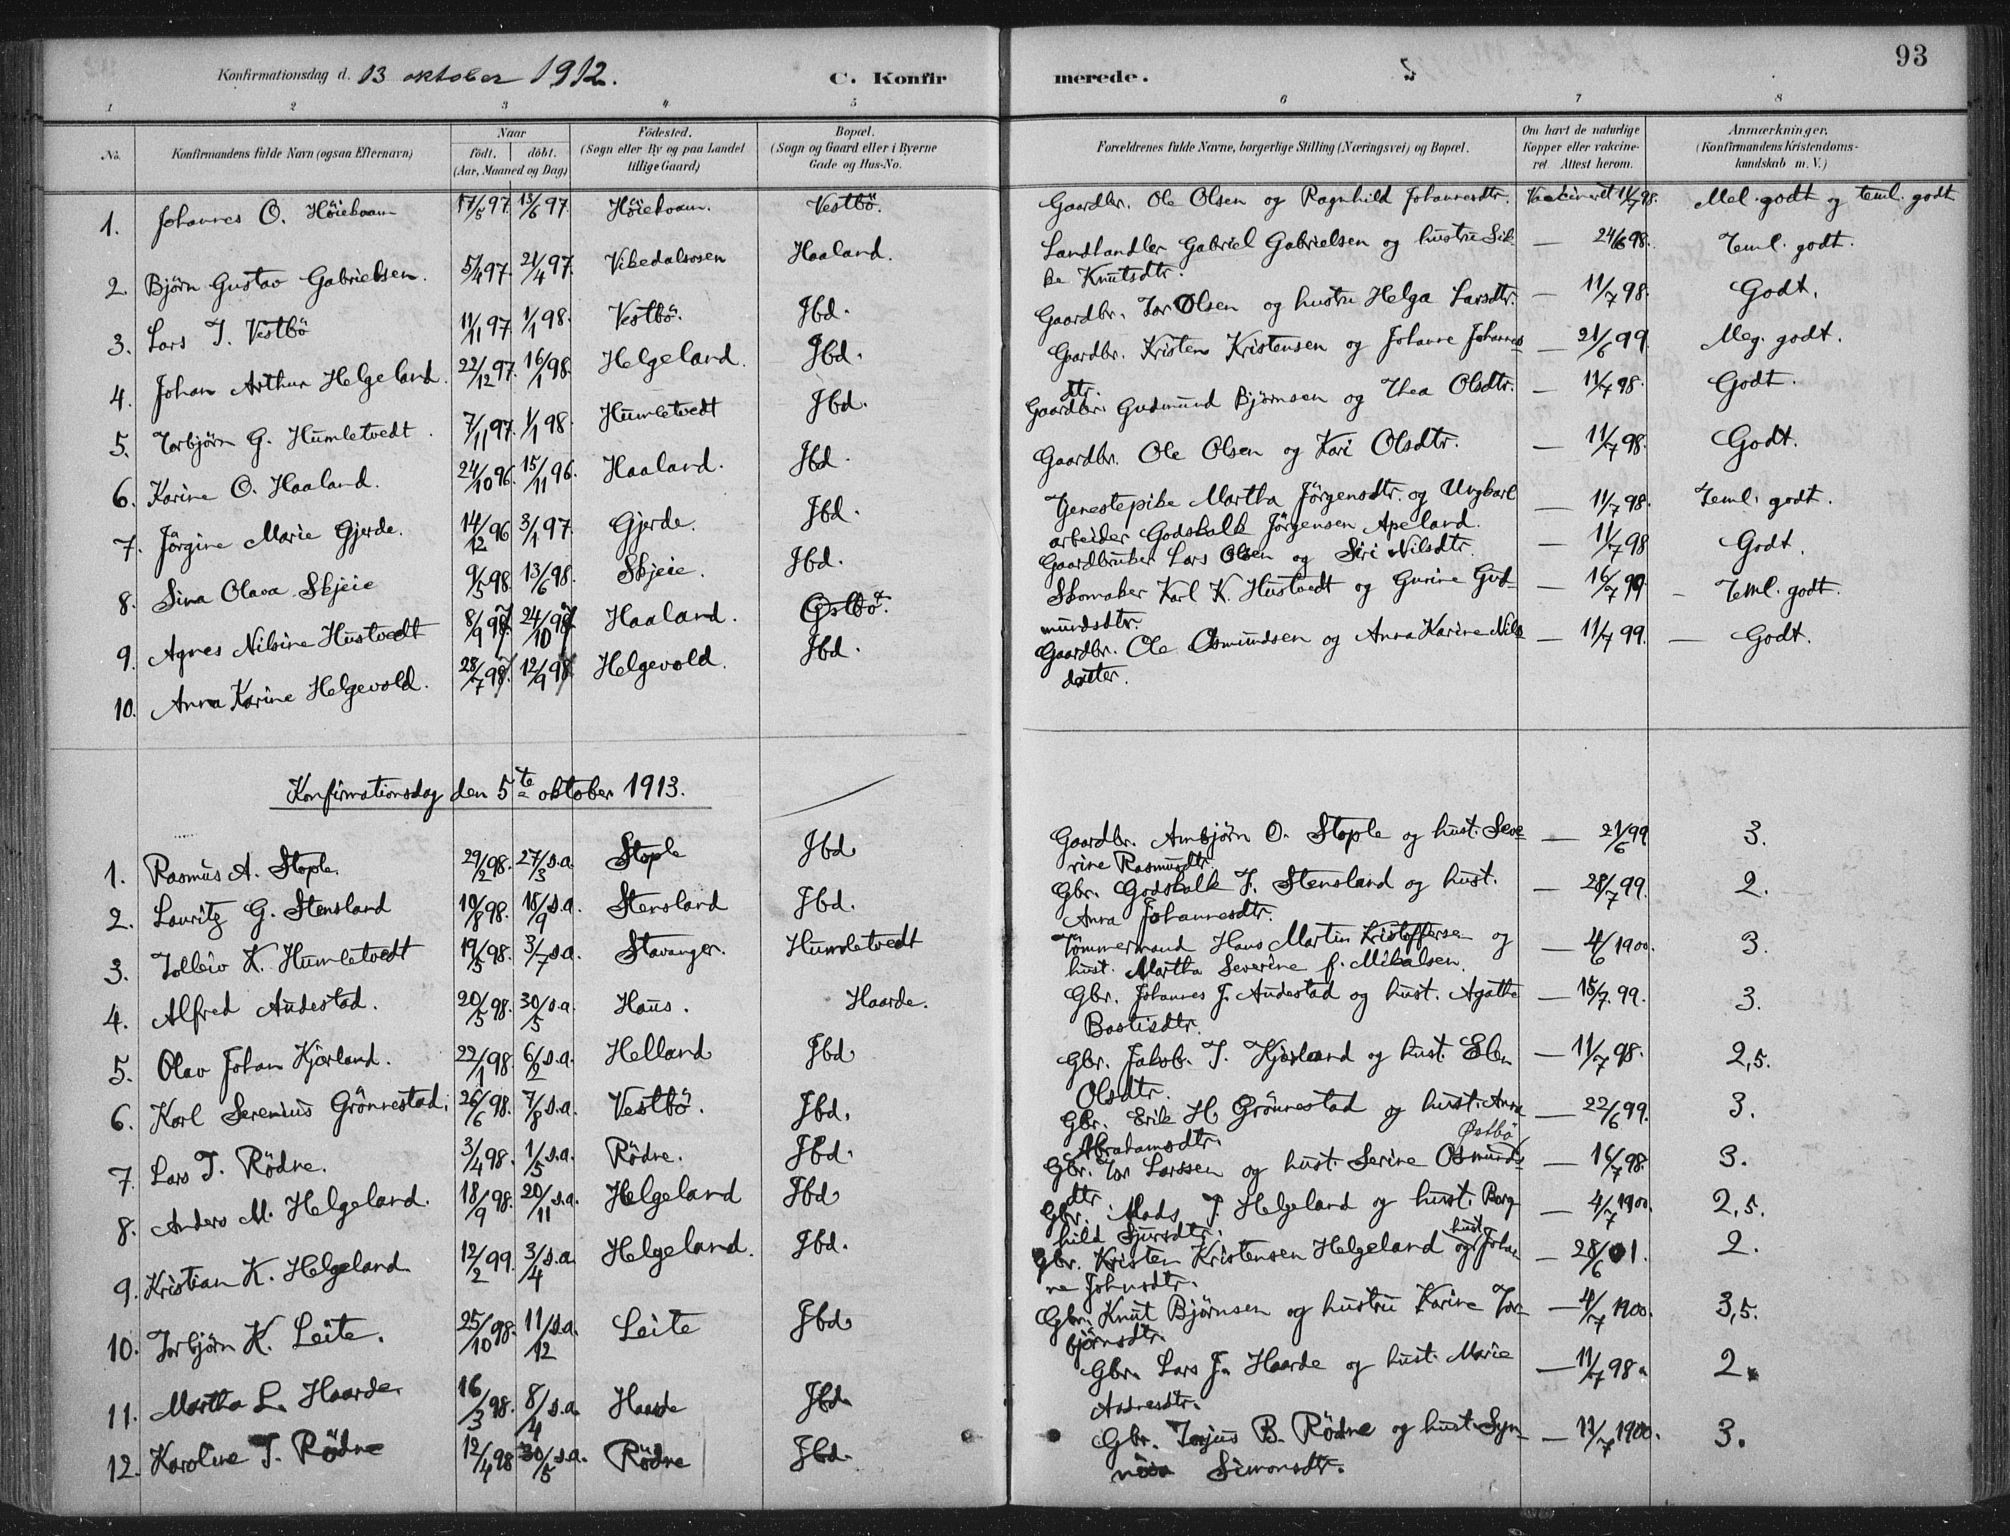 93
Konfirmationsdag d. 13 oktober 1912. C. Konfirmerede.
1 2 3 4 5 6 7 8
No. Konfirmandens fulde Navn (ogsaa Efternavn) Naar født. døbt. (Aar, Maaned og Dag) Fødested. (Sogn eller By og paa Landet tillige Gaard) Bopæl. (Sogn og Gaard eller i Byerne Gade og Hus-No. Forældrenes fulde Navne, borgerlige Stilling (Næringsvei) og Bopæl. Om havt de naturlige Kopper eller vakcineret. Attest herom. Anmærkninger. (Konfirmandens Kristendomskundskab m. V.)
1. Johannes O. Höiekvam 17/5 97. 13/6 97. Höiekvam. Vestbö. Gaardbr. Ole Olsen og Ragnhild Johannesdtr. Vaccineret 11/7 98. Mel. godt og teml. godt
2. Björn Gustav Gabrielsen. 5/4 97. 21/4 97. Vikedalsosen Haaland. Landhandler Gabriel Gabrielsen og hustru Sik-
ke Knutsdtr. — 24/6 98. Teml. godt.
3. Lars T. Vestbö 11/11 97. 1/1 98. Vestbö. Ibd. Gaardbr. Tor Olsen og hustru Helga Larsdtr. — 11/7 98. Godt.
4. Johan Arthur Helgeland. 22/12 97. 16/1 98. Helgeland. Ibd. Gaardbr. Kristen Kristensen og Johanne Johannes-
dtr. — 21/6 99. Meg. godt.
5. Torbjörn G. Humletvedt. 7/11 97. 1/1 98. Humletvedt Ibd. Gaardbr. Gudmund Björnsen og Thea Olsdtr. — 11/7 98. Godt.
6. Karine O. Haaland. 24/10 96. 15/11 96. Haaland. Ibd. Gaardbr. Ole Olsen og Kari Olsdtr. — 11/7 98. Godt.
7. Jörgine Marie Gjerde. 14/12 96 3/1 97. Gjerde. Ibd. Tjenestepike Martha Jörgensdtr. og Ungkarl
arbeider Godskalk Jörgensen Apeland. — 11/7 98. Teml. godt.
8. Sina Olava Skjeie 9/5 98. 13/6 98. Skjeie. Ibd. Gaardbruker Lars Olsen og Siri Nilsdtr. — 11/7 98 Godt.
9. Agnes Nilsine Hustvedt 8/9 97. 24/10 97 Haaland. Østbö. Skomaker Karl K. Hustvedt og Gurine Gud-
mundsdtr. — 16/7 99 — Teml. godt.
10. Anna Karine Helgevold. 28/7 97. 12/9 97 Helgevold. Ibd. Gaardbr. Ole Osmundsen og Anna Karine Nils
datter. — 11/7 99. — Godt.
Konfirmationsdag den 5te oktober 1913.
1. Rasmus A. Stople. 29/2 98. 27/3 s.a. Stople Ibd Gaardbr. Arnbjörn O. Stople og hust. Seve-
rine Rasmusdtr. — 21/6 99 3.
2. Lauritz G. Stensland 10/8 98. 18/9 s.a. Stensland Ibd. Gbr. Godskalk T. Stensland og hust.
Anna Johannesdtr. — 28/7 99. 2.
3. Tolleiv K. Humletvedt 19/5 98. 3/7 s.a. Stavanger. Humletvedt Tömmermand Hans Martin Kristoffersen og
hust. Martha Severine f. Mikalsen. — 4/6 1900. 3.
4. Alfred Audestad. 20/5 98. 30/5 s.a. Haus. Haarde. Gbr. Johannes J. Audestad og hust. Agathe
Bastisdtr. — 15/7 99. 3.
5. Olav Johan Kjörland. 22/1 98. 6/2 s.a. Helland Ibd Gbr. Jakob. T. Kjörland og hust. Elen
Olsdtr. — 11/7 98. 2,5.
6. Karl Serenius Grönnestad. 26/6 98. 7/8 s.a. Vestbö. Ibd. Gbr. Erik H. Grönnestad og hust. Anna
Abrahamsdtr. — 22/6 99. 3.
7. Lars T. Rödne. 3/4 98. 1/5 s.a. Rödne. Ibd. Gbr. Tor Larssen og hust. Serine Osmunds
dtr Østbö — 16/7 98. 3.
8. Anders M. Helgeland. 18/9 98. 20/11 s.a. Helgeland Ibd Gbr. Mads T. Helgeland og hust. Borg-
hild Sjursdtr. — 4/7 1900. 2,5.
9. Kristian K. Helgeland 12/2 99. 3/4 s.a. Helgeland. Ibd. Gbr. Kristen Kristensen Helgeland og hust. Johan-
ne Johnsdtr. — 28/6 01. 2.
10. Torbjörn K. Leite. 25/10 98. 11/12 s.a. Leite Ibd Gbr. Knut Bjørnsen og hustru Karine Tor-
bjørnsdtr. — 4/7 1900. 3,5.
11. Martha L. Haarde. 16/3 98. 8/4 s.a. Haarde Ibd. Gbr. Lars J. Haarde og hust. Marie
Andresdtr. — 11/7 98. 2.
12. Karoline T. Rödne 12/4 98 30/5 s.a. Rödne Ibd. Gbr. Terjus B. Rödne og hust. Syn-
Simonsdtr. — 11/7 1900. 3.